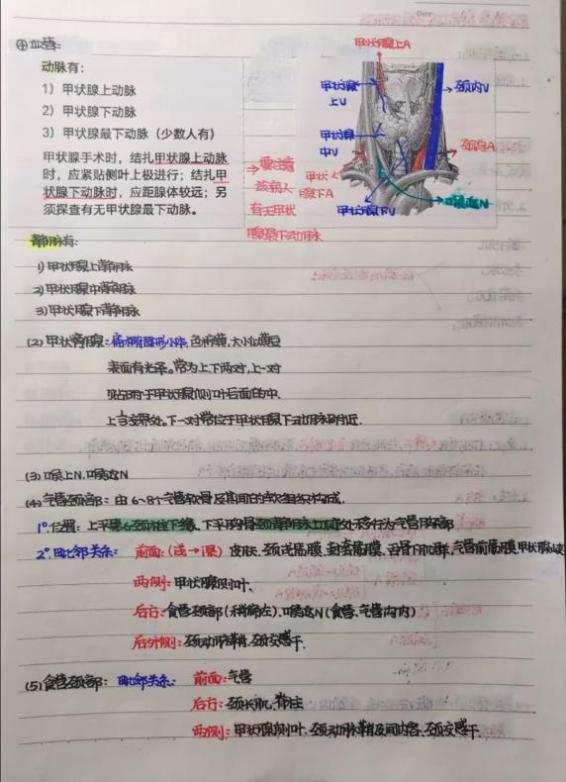 ④血管:
动脉有:
1) 甲状腺上动脉
2) 甲状腺下动脉
3) 甲状腺最下动脉（少数人有）
甲状腺手术时，结扎甲状腺上动脉
时，应紧贴侧叶上极进行；结扎甲
状腺下动脉时，应距腺体较远；另
须探查有无甲状腺最下动脉。
要注意
该病人
有无甲状
腺最下动脉
甲状腺上A
甲状腺
上V
颈内V
甲状腺
中V
颈总A
甲状
腺下A
甲状腺下V
喉返N
静脉有:
1) 甲状腺上静脉
2) 甲状腺中静脉
3) 甲状腺下静脉
(2) 甲状旁腺: 扁椭圆形小体, 色棕黄, 大小似黄豆
表面有光泽。常为上、下两对, 上一对
贴附于甲状腺侧叶后面的中、
上1/3交界处。下一对常位于甲状腺下动脉附近.
(3) 喉上N. 喉返N
(4) 气管颈部: 由6~8个气管软骨及其间的软组织构成.
1°. 位置: 上平第6颈椎下缘, 下平胸骨颈静脉切迹处移行为气管胸部
2°. 毗邻关系: 前面: (浅→深) 皮肤. 颈浅筋膜, 封套筋膜, 舌骨下肌群, 气管前筋膜, 甲状腺峡
两侧: 甲状腺侧叶、
后行: 食管颈部(稍偏左). 喉返N(食管、气管沟内)
后外侧: 颈动脉鞘, 颈交感干.
(5) 食管颈部: 毗邻关系: 前面: 气管
后行: 颈长肌, 脊柱
两侧: 甲状腺侧叶. 颈动脉鞘及同内容. 颈交感干.